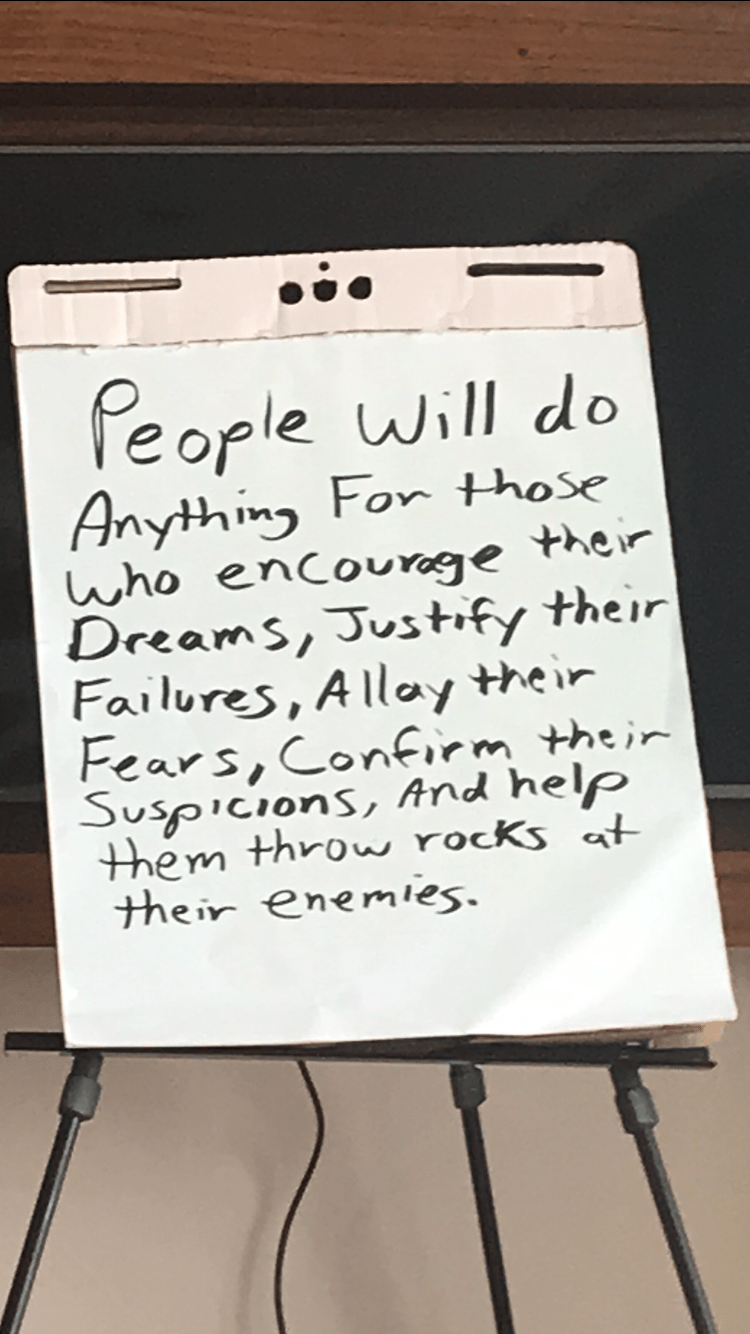 People Will do
Anything For those
who encourage their
Dreams, Justify their
Failures, Allay their
Fears, Confirm their
Suspicions, And help
them throw rocks at
their enemies.